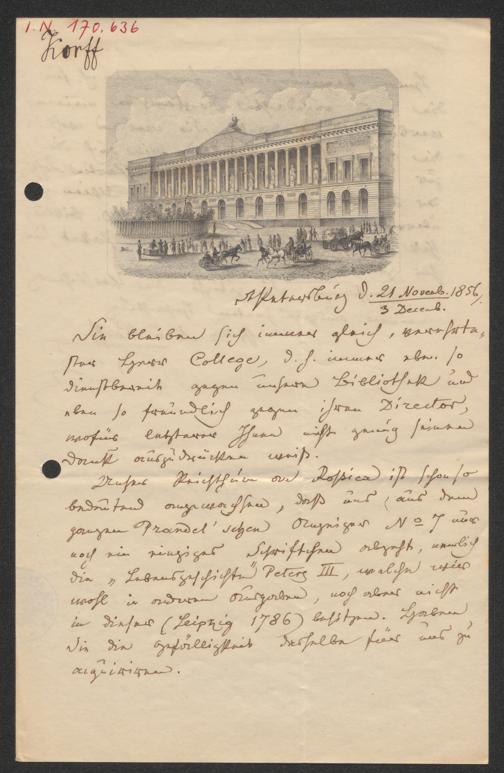 I. N. 170.636
Korff
St Petersburg d. 21 Novemb. 1856.
3 Decemb.
Sie bleiben sich immer gleich, verehrte-
ster Herr College, d. h. immer eben so
dienstbereit gegen unsere Bibliothek und
eben so freundlich gegen ihren Director,
wofür letzterer Ihnen nicht genug seinen
Dank auszudrücken weiß.
Unser Reichthum an Rossica ist schon so
bedeutend angewachsen, daß uns aus dem
ganzen Prandel'schen Anzeiger No 7 nur
noch ein einziges Schriftchen abgeht, nemlich
die „Lebensgeschichte" Peters III, welche wir
wohl in anderen Ausgaben, noch aber nicht
in dieser (Leipzig 1786) besitzen. Haben
Sie die Gefälligkeit dieselbe für uns zu
acquiriren.